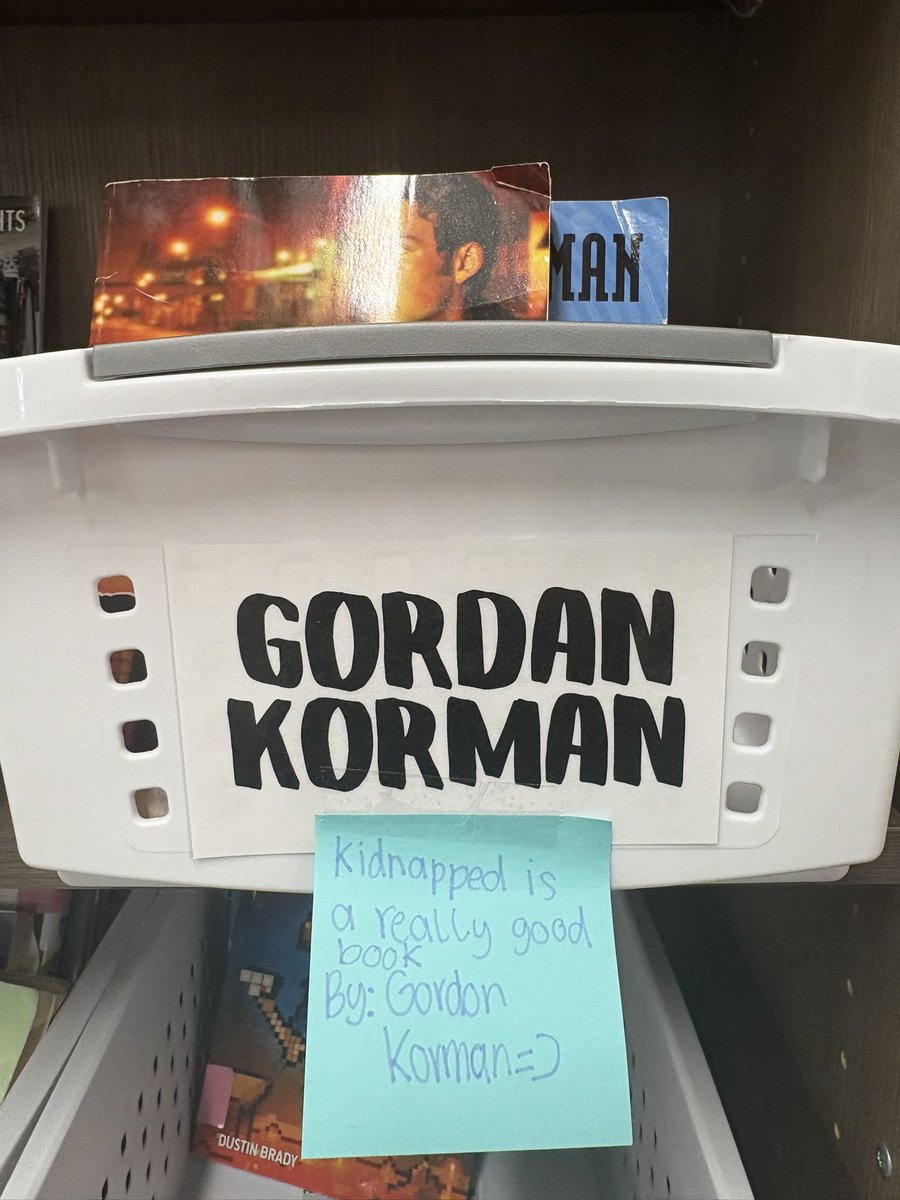 ITS
MAN
GORDAN
KORMAN
Kidnapped is
a really good
book
By: Gordon
Korman=)
DUSTIN BRADY